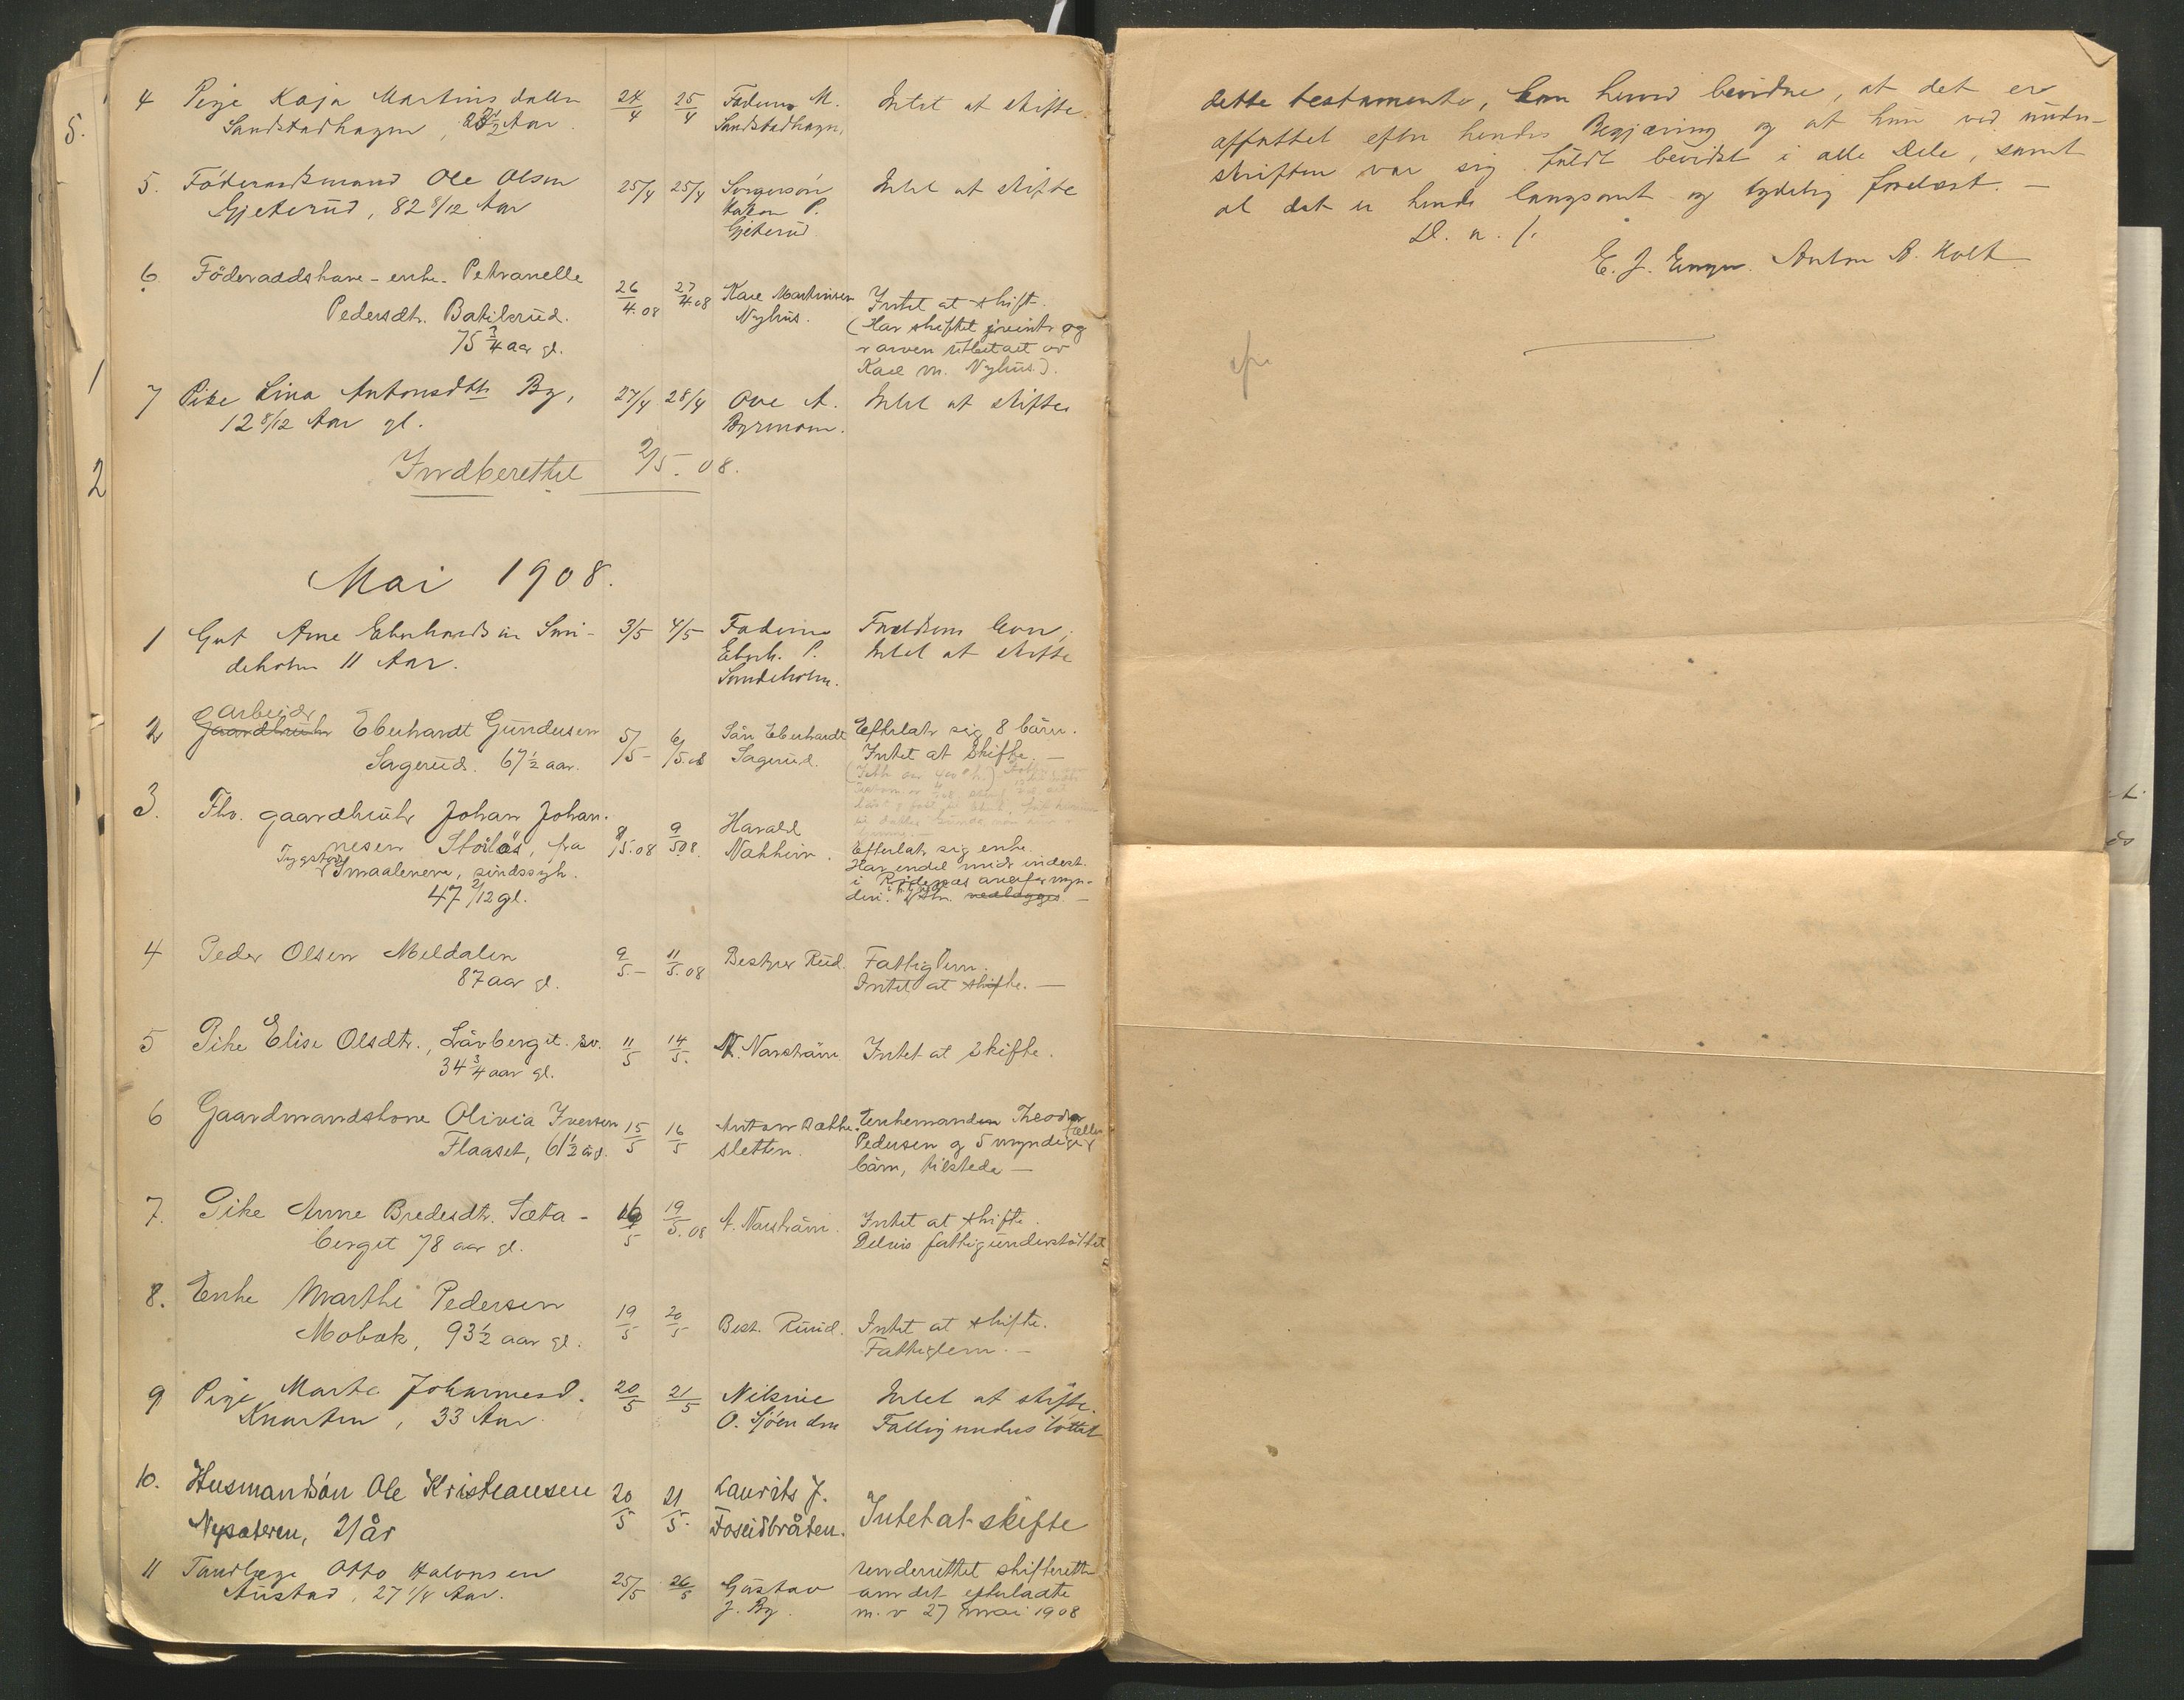 5.
1
2
4 Pige Kaja Martinsdatter 24/4 25/4 Faderen M. Intet at skifte.
Sandstadhagen, Aar Sandstadhagen,
5. Föderaadsmand Ole Olsen 25/4 25/4 Svigersön Intet at skifte
Gjeterud, 82 8/12 Aar Hakon P.
Gjeterud
6 Föderaadskone - enke - Petranelle 26/4.08 27/4.08 Karl Martinsen Intet at skift.
Pedersdt. Batikerud. Nyhus. (Har skiftet og
75 3/4 aar gl. arven utbetalt av
Karl M. Nyhus).
7 Pike Lina Antonsdtr By, 27/4 28/4 Ove A. Intet at skifte
12 8/12 Aar gl. Byrmoen.
Indberettet 2/5. 08.
Mai 1908.
1 Gut Arne Eberhardsen Smi- 3/5 4/5 Faderen Forældrene lever,
deholm 11 Aar. Eberh. P. Intet at skifte
Smideholm.
arbeider
2 Gaardbruker Eberhardt Gundersen 5/5 - 6/5.08 Sön Eberhardt Efterlater sig 8 börn.
Sagerud. 67 1/2 aar. Sagerud. Intet at skifte. —
3. Fhv. gaardbruker Johan Johan-
nesen Stöilås, fra 8/5.08 9/5 08. Harald Efterlater sig enke.
Smaalenene, sindssyk. Nakkim. Har endel midler indest.
47 2/12 gl. i Rödenæs overformyn-
deri. nedlægges. —
4 Peder Olsen Meldalen 9/5 - 11/5.08 Bestyrer Rud. Fattiglem.
87 aar gl. Intet at skifte. —
5 Pike Elise Olsdtr., Lövberget. 11/5 14/5. N. Narström Intet at skifte.
34 3/4 aar gl.
6 Gaardmandskone Olivia Iversen 15/5 16/5 Anton Bakke- Enkemanden Theodor
Flaaset, 61 1/2 år. sletten. Pedersen og 5 myndige fælles
börn, tilstede —
7. Pike Anne Bredesdtr. Sæta- 16/5 19/5.08 A. Narström. Intet at skifte.
berget 78 aar gl. Delvis fattigunderstöttet
8. Enke Marthe Pedersen 19/5 20/5 Best. Ruud. Intet at skifte.
Mobæk, 93 1/2 aar gl. Fattiglem. —
9 Pige Marte Johannesd. 20/5 21/5 Nilsine Intet at skifte.
Knarten, 33 Aar O. Sjöenden Fattigunderstöttet
10. Husmandsön Ole Kristiansen 20/5 21/5. Laurits J. Intet at skifte
Nysæteren, 21 år Foseidbråten.
11 Tandlæge Otto Halvorsen 25/5 26/5 Gustav underrettet skifteretten
Austad, 27 1/4 Aar. J. By. om det efterladte
m. v 27 mai 1908
dette testamente, kan herved bevidne, at det er
affattet efter hendes Begjæring og at hun ved under-
skriften var sig fuldt bevidst i alle Dele, samt
at det er hende langsomt og tydelig forelæst. —
D. u. s.
E. J. Enger. Anton A. Holt